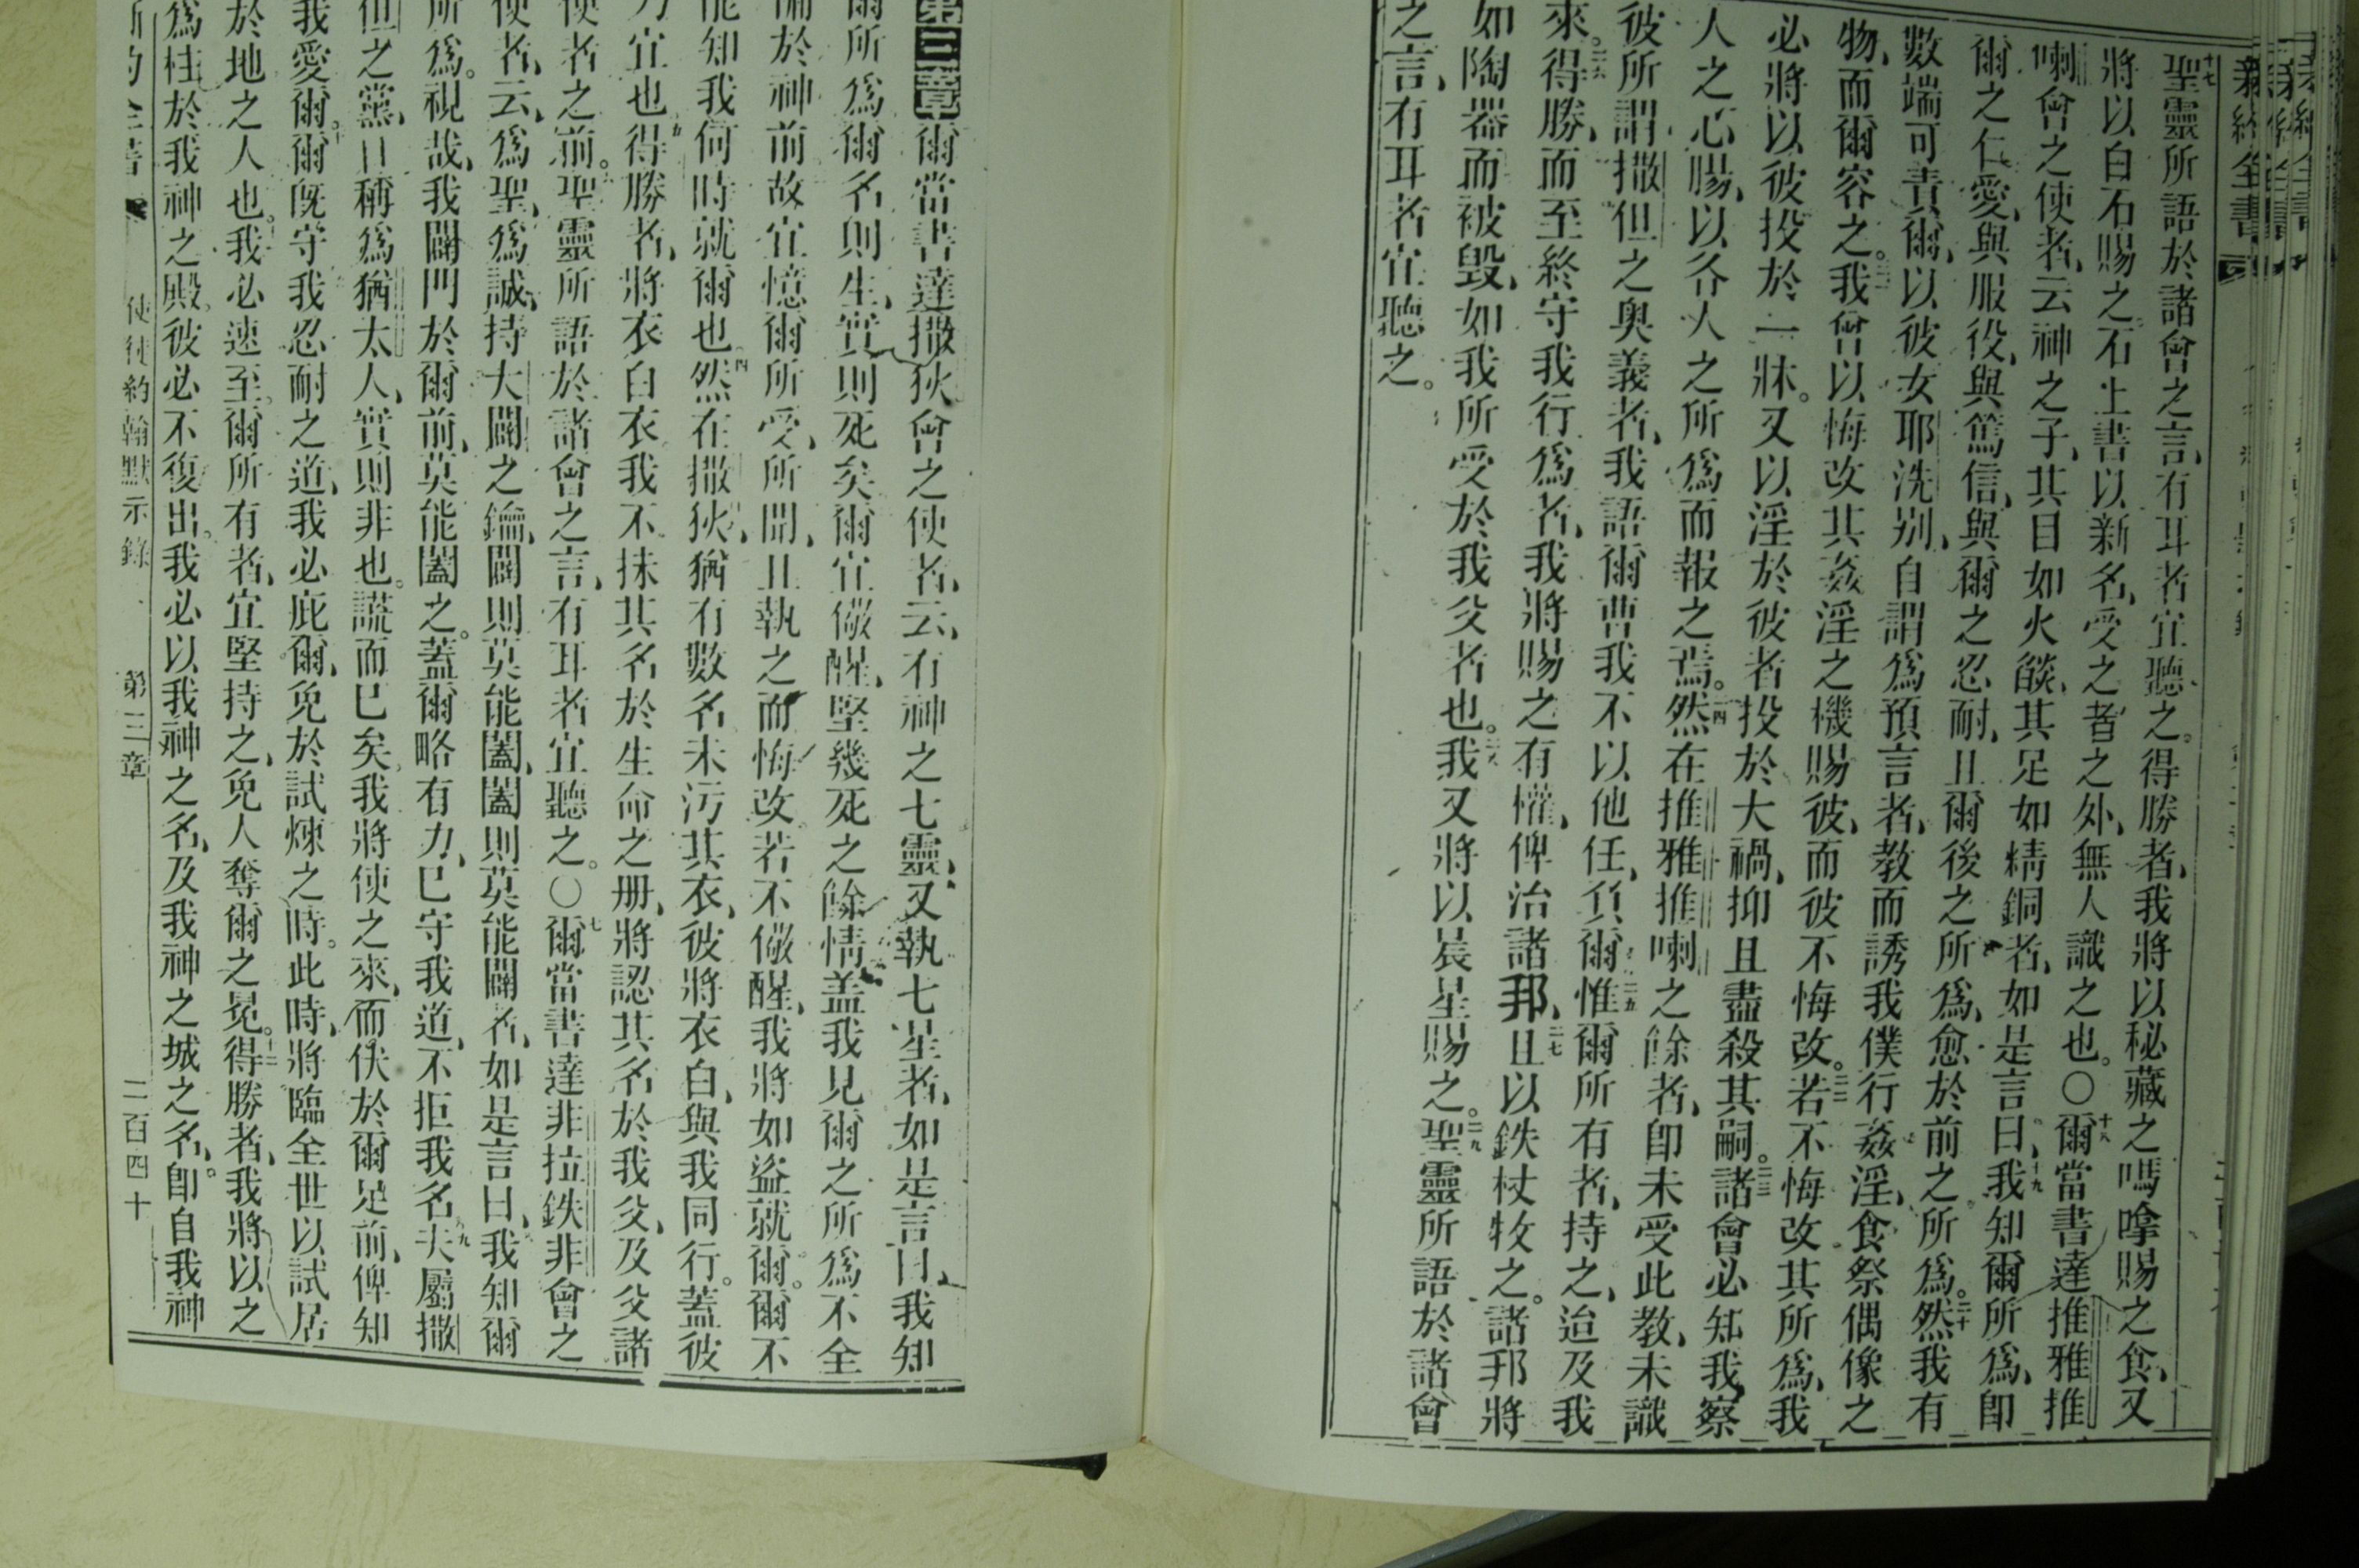 新約全書
聖靈所語於諸會之言、有耳者宜聽之。得勝者、我將以秘藏之嗎嗱賜之食、又
將以白石賜之、石上書以新名、受之者之外、無人識之也。〇十八爾當書達推雅推
喇會之使者、云、神之子、其目如火燄、其足如精銅者、如是言曰、十九我知爾所爲、即
爾之仁愛、與服役、與篤信、與爾之忍耐、且爾後之所爲、愈於前之所爲。二十然我有
數端可責爾、以彼女耶洗別、自謂爲預言者、教而誘我僕行姦淫、食祭偶像之
物、而爾容之。二一我曾以悔改其姦淫之機賜彼、而彼不悔改。二二若不悔改其所爲、我
必將以彼投於一牀。又以淫於彼者、投於大禍、抑且盡殺其嗣。二三諸會必知我、察
人之心腸、以各人之所爲而報之焉。二四然在推雅推喇之餘者、即未受此教、未識
彼所謂撒但之奧義者、我語爾曹、我不以他任、負爾、二五惟爾所有者、持之、迨及我
來。二六得勝、而至終守我行爲者、我將賜之有權、俾治諸邦、二七且以鉄杖牧之。諸邦將
如陶器而被毀、如我所受於我父者也。二八我又將以晨星賜之。二九聖靈所語於諸會
之言、有耳者宜聽之。
第三章爾當書達撒狄會之使者、云、有神之七靈、又執七星者、如是言曰、我知
爾所爲、爾名則生、實則死矣、爾宜儆醒、堅幾死之餘情、盖我見爾之所爲不全
備於神前、故宜憶爾所受、所聞、且執之而悔改、若不儆醒、我將如盜就爾。爾不
能知我何時就爾也、四然在撒狄、猶有數名未污其衣、彼將衣白、與我同行。蓋彼
乃宜也、得勝者、將衣白衣、我不抹其名於生命之册、將認其名於我父、及父諸
使者之前。聖靈所語於諸會之言、有耳者宜聽之。〇七爾當書達非拉鉄非會之
使者、云、爲聖、爲誠、持大闢之鑰、闢則莫能闔、闔則莫能闢者、如是言曰、我知爾
所爲。視哉、我闢門於爾前、莫能闔之。蓋爾略有力、已守我道、不拒我名、九夫屬撒
但之黨、自稱爲猶太人、實則非也。謊而已矣、我將使之來、而伏於爾足前、俾知
我愛爾。十爾既守我忍耐之道、我必庇爾、免於試煉之時。此時、將臨全世以試居
於地之人也。我必速至。爾所有者、宜堅持之、免人奪爾之冕。十二得勝者、我將以之
爲柱於我神之殿。彼必不復出。我必以我神之名、及我神之城之名、即自我神
新約全書 使徒約翰默示錄 第三章 二百四十